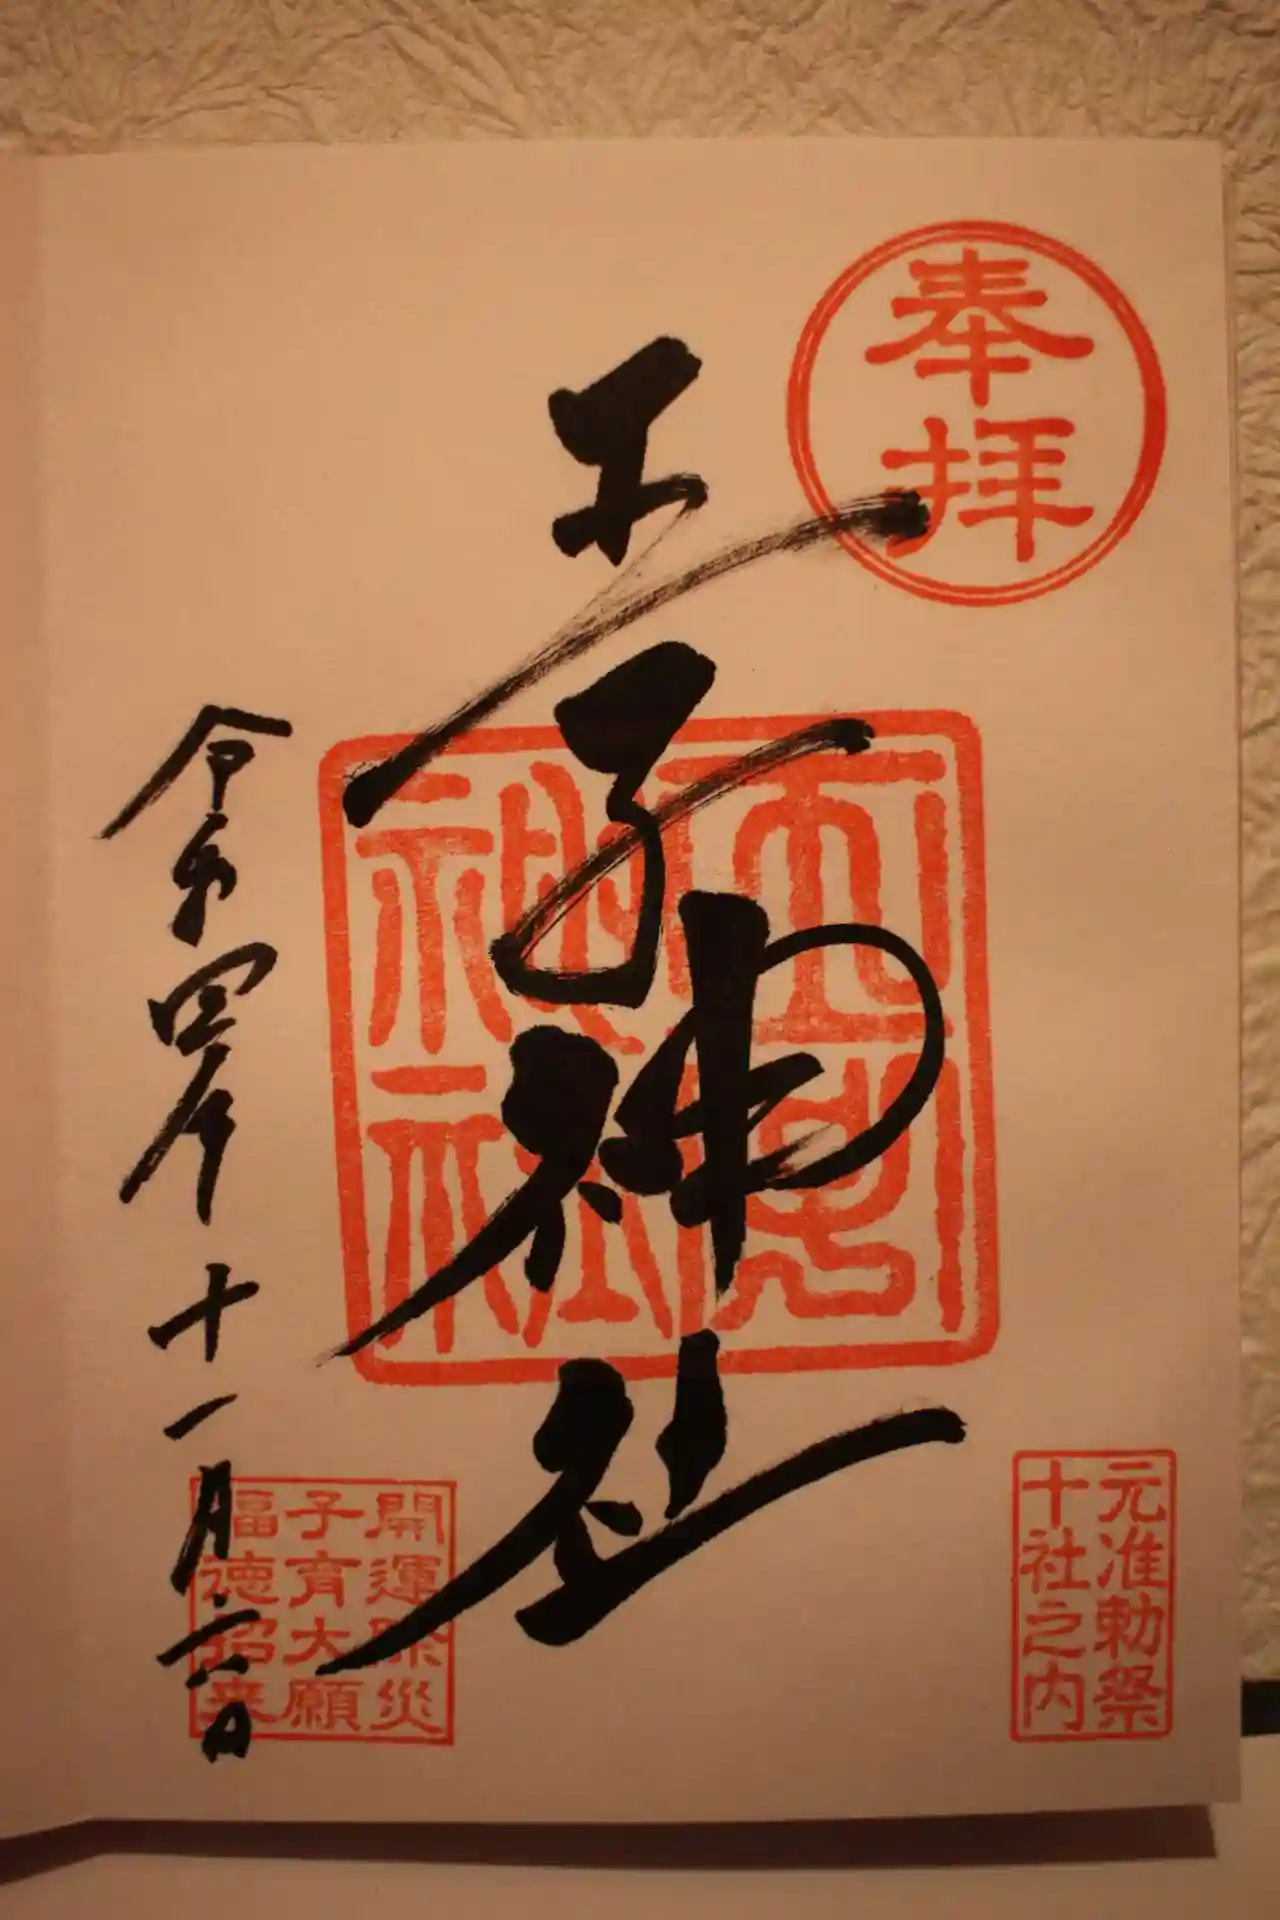 奉拝
元准勅祭
十社之内
王子神社
王子
神社
開運除災
子育大願
福徳招来
令和四年十一月六日